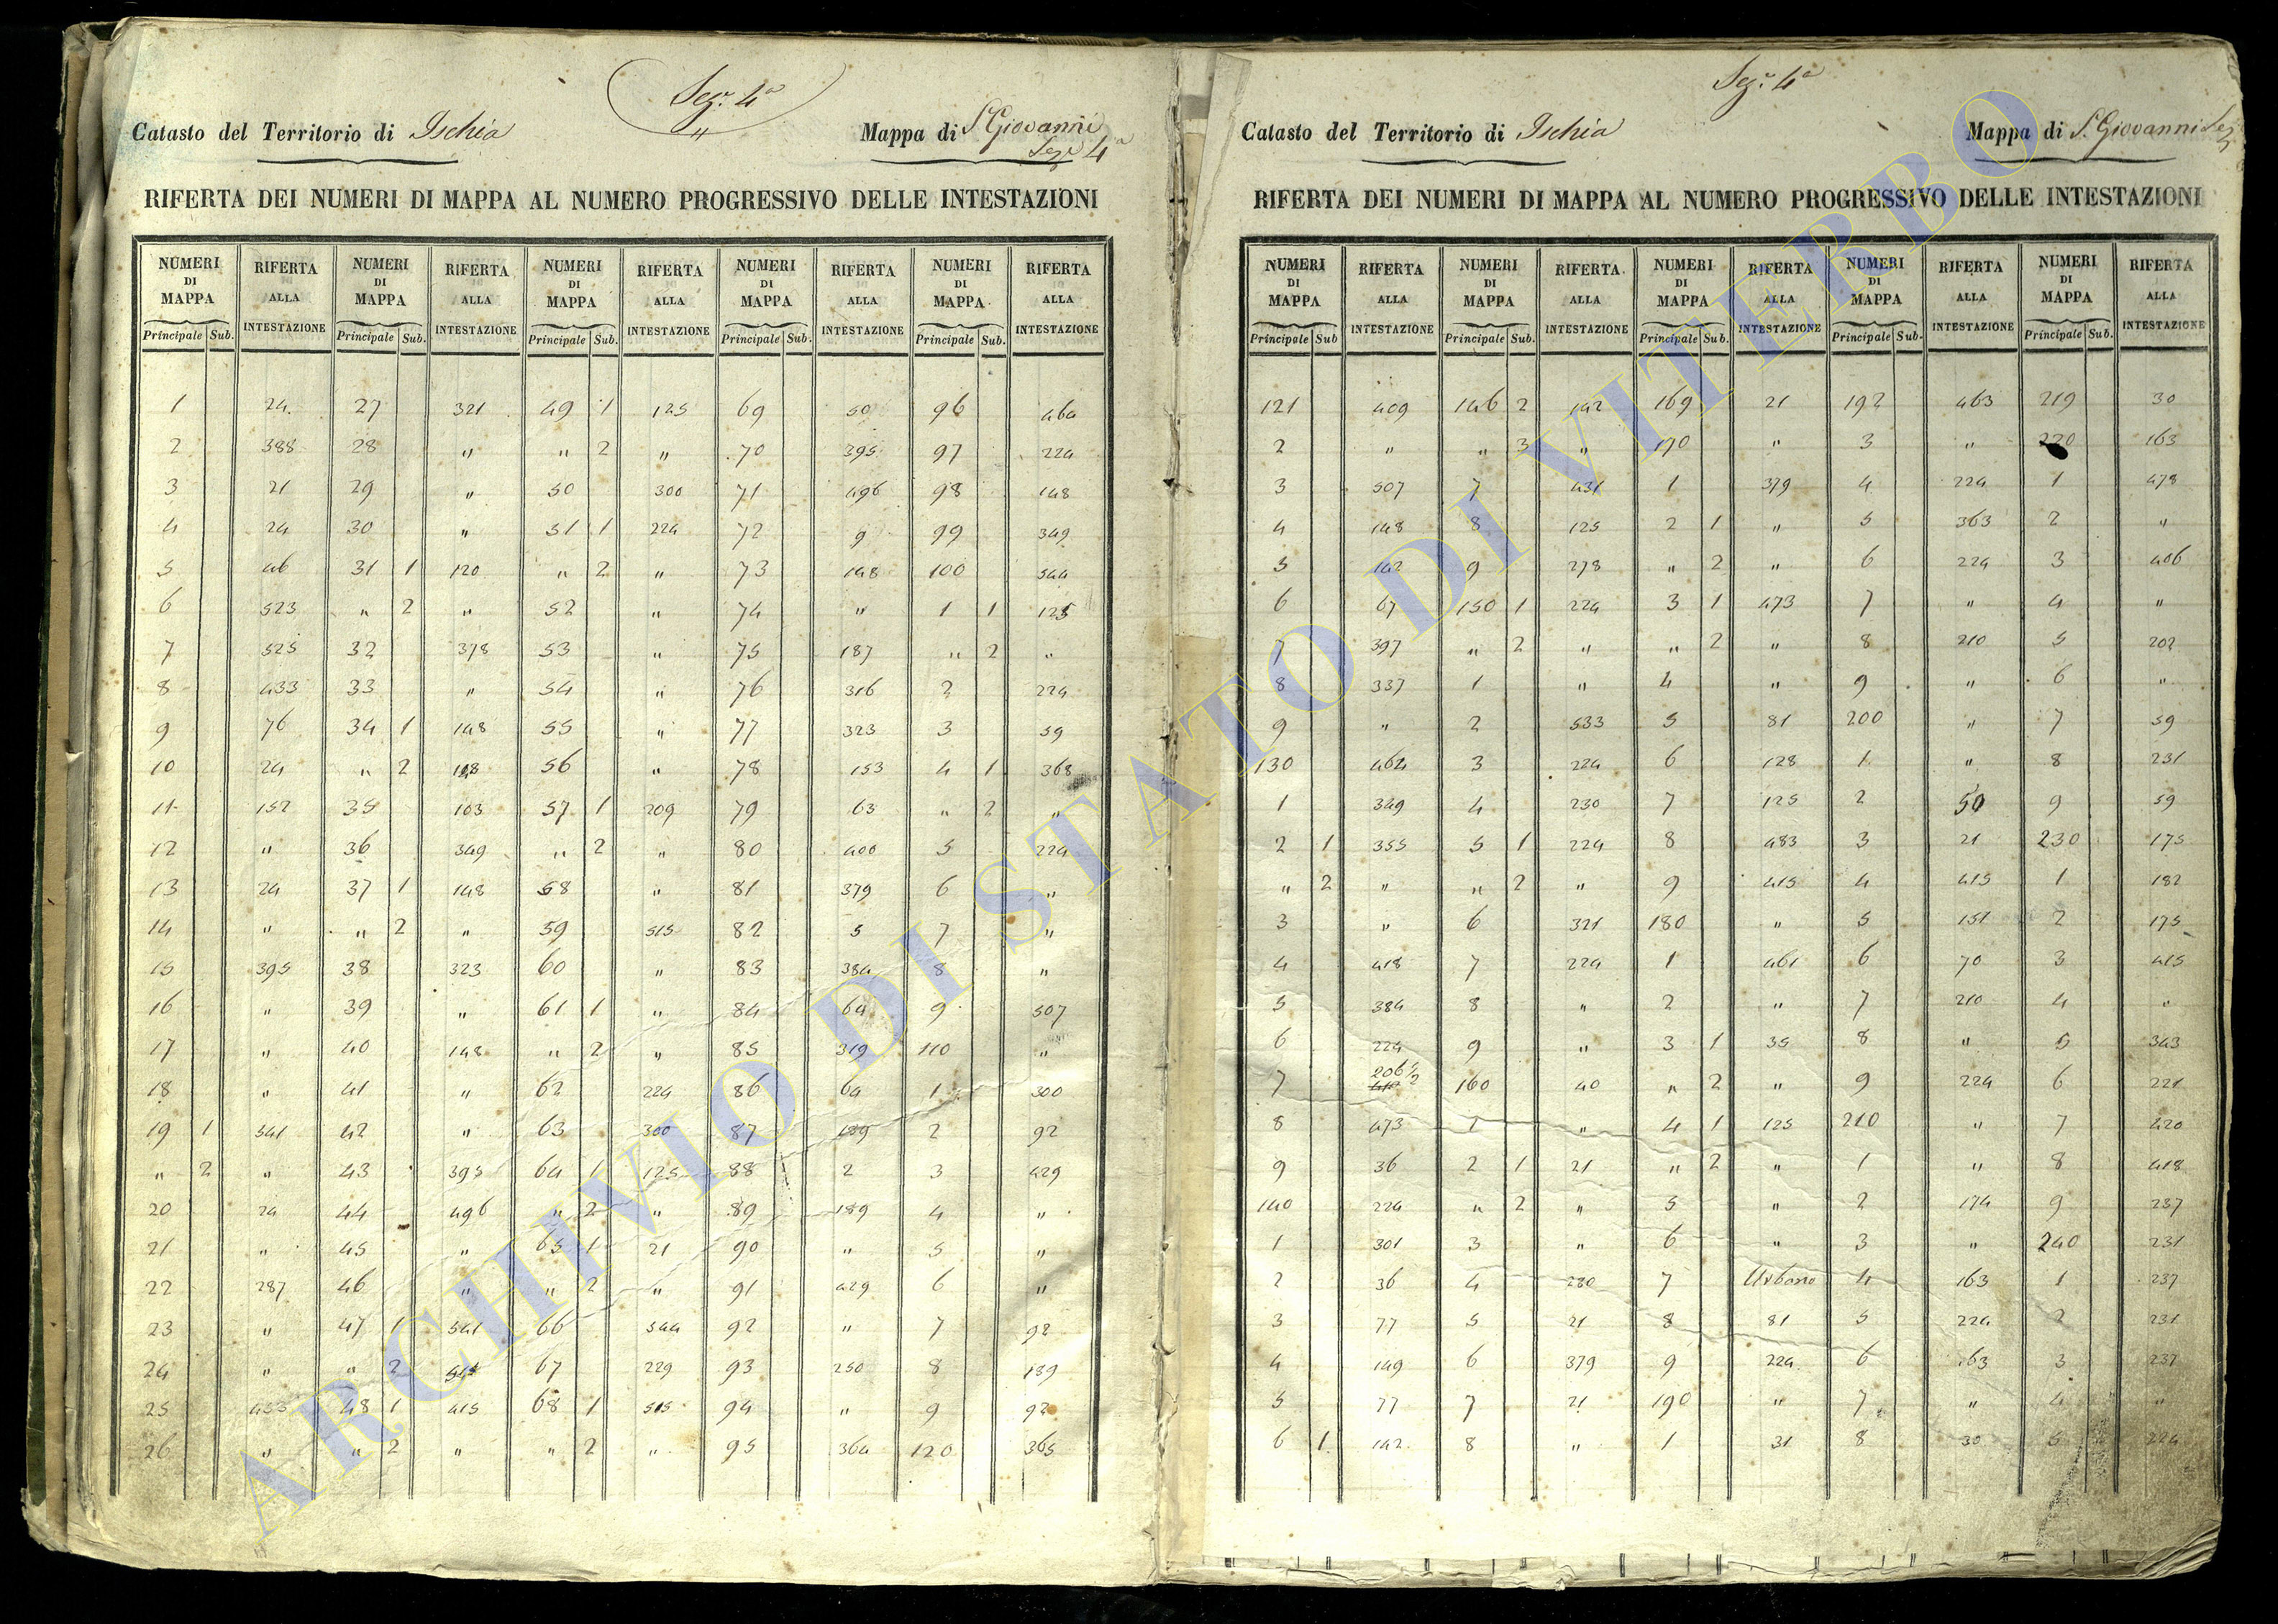 Segᵉ 4ᵃ
"
Catasto del Territorio di Ischia
Mappa di S. Giovanni
Segᵉ 4ᵃ
RIFERTA DEI NUMERI DI MAPPA AL NUMERO PROGRESSIVO DELLE INTESTAZIONI
NUMERI DI MAPPA RIFERTA ALLA INTESTAZIONE NUMERI DI MAPPA RIFERTA ALLA INTESTAZIONE NUMERI DI MAPPA RIFERTA ALLA INTESTAZIONE NUMERI DI MAPPA RIFERTA ALLA INTESTAZIONE NUMERI DI MAPPA RIFERTA ALLA INTESTAZIONE
Principale Sub. Principale Sub. Principale Sub. Principale Sub. Principale Sub.
1 24 27 321 49 1 125 69 50 96 464
2 388 28 " " 2 " 70 395 97 224
3 21 29 " 50 300 71 496 98 148
4 24 30 " 51 1 224 72 9 99 349
5 46 31 1 120 " 2 " 73 148 100 544
6 523 " 2 " 52 " 74 " 1 1 125
7 525 32 378 53 " 75 187 " 2 "
8 433 33 " 54 " 76 316 2 224
9 76 34 1 148 55 " 77 323 3 59
10 24 " 2 148 56 " 78 153 4 1 368
11 152 35 103 57 1 209 79 63 " 2 "
12 " 36 349 " 2 " 80 400 5 224
13 24 37 1 148 58 " 81 379 6 "
14 " " 2 " 59 515 82 5 7 "
15 395 38 323 60 " 83 384 8 "
16 " 39 " 61 1 " 84 64 9 507
17 " 40 148 " 2 " 85 319 110 "
18 " 41 " 62 224 86 64 1 300
19 1 541 42 " 63 300 87 189 2 92
" 2 " 43 395 64 1 125 88 2 3 429
20 24 44 496 " 2 " 89 189 4 "
21 " 45 " 65 1 21 90 " 5 "
22 287 46 " " 2 " 91 429 6 "
23 " 47 1 541 66 544 92 " 7 92
24 " " 2 67 229 93 250 8 189
25 433 48 1 415 68 1 515 94 " 9 92
26 " " 2 " " 2 " 95 364 120 365
Segᵉ 4ᵃ
Catasto del Territorio di Ischia
Mappa di S. Giovanni Seg
RIFERTA DEI NUMERI DI MAPPA AL NUMERO PROGRESSIVO DELLE INTESTAZIONI
NUMERI DI MAPPA RIFERTA ALLA INTESTAZIONE NUMERI DI MAPPA RIFERTA ALLA INTESTAZIONE NUMERI DI MAPPA RIFERTA ALLA INTESTAZIONE NUMERI DI MAPPA RIFERTA ALLA INTESTAZIONE NUMERI DI MAPPA RIFERTA ALLA INTESTAZIONE
Principale Sub Principale Sub. Principale Sub. Principale Sub. Principale Sub.
121 409 146 2 142 169 21 192 463 219 30
2 " " 3 " 170 " 3 " 220 163
3 507 7 431 1 379 4 224 1 478
4 148 8 125 2 1 " 5 363 2 "
5 142 9 278 " 2 " 6 224 3 406
6 67 150 1 224 3 1 473 7 " 4 "
7 397 " 2 " " 2 " 8 210 5 202
8 337 1 " 4 " 9 " 6 "
9 " 2 533 5 81 200 " 7 59
130 464 3 224 6 128 1 " 8 231
1 349 4 230 7 125 2 50 9 59
2 1 355 5 1 224 8 483 3 21 230 175
" 2 " " 2 " 9 415 4 415 1 182
3 " 6 321 180 " 5 151 2 175
4 418 7 224 1 461 6 70 3 415
5 384 8 " 2 " 7 210 4 "
6 224 9 " 3 1 35 8 " 5 343
7 206½ 160 40 " 2 " 9 224 6 221
8 473 1 " 4 1 125 210 " 7 420
9 36 2 1 21 " 2 " 1 " 8 418
140 224 " 2 " 5 " 2 174 9 237
1 301 3 " 6 " 3 " 240 231
2 36 4 280 7 Urbano 4 163 1 237
3 77 5 21 8 81 5 224 2 231
4 149 6 379 9 224 6 163 3 237
5 77 7 21 190 " 7 " 4 "
6 1 142 8 " 1 31 8 30 5 224
ARCHIVIO DI STATO DI VITERBO